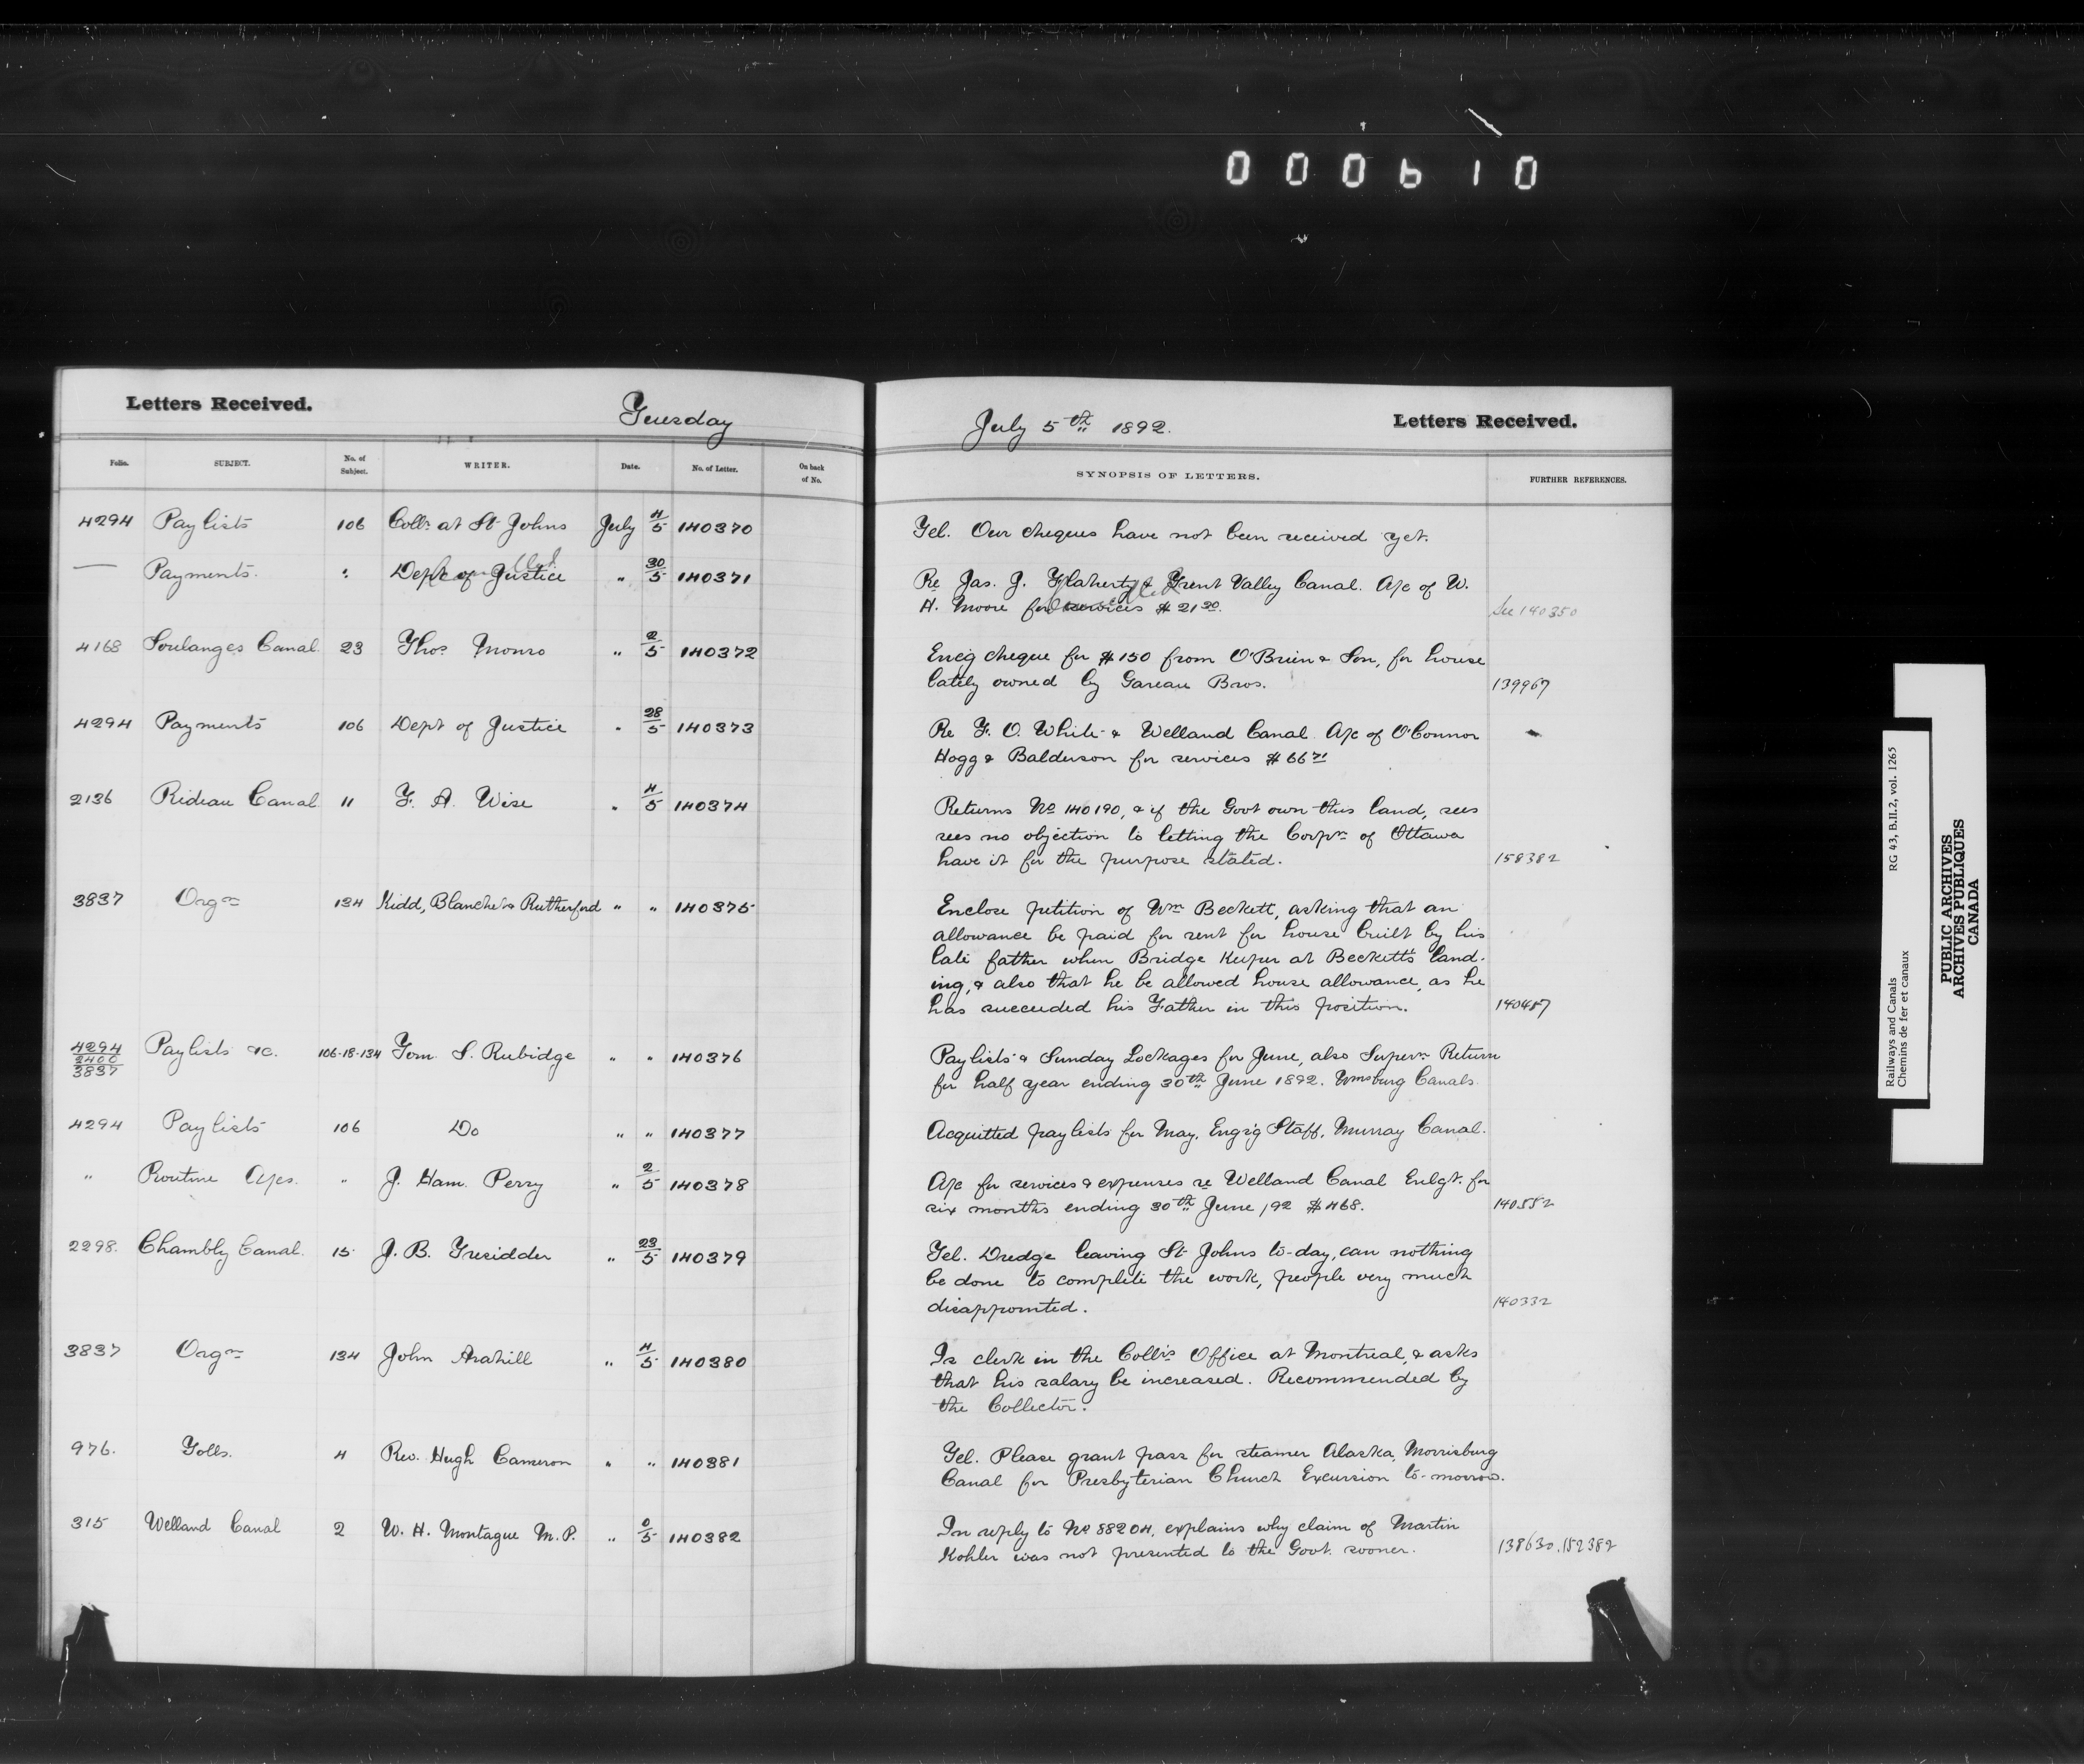 000610
Letters Received. Tuesday
July 5th 1892. Letters Received.
Folio. SUBJECT. No. of Subject. WRITER. Date. No. of Letter. On back of No.
SYNOPSIS OF LETTERS. FURTHER REFERENCES.
4294 Paylists 106 Collr. at St Johns July 4/5 140370
Tel. Our cheques have not been received yet.
— Payments. " Dept of Justice " 30/5 140371
Re Jas. J. Flaherty & Trent Valley Canal. A/c of W.
H. Moore for services $ 21 30. See 140350
4168 Soulanges Canal 23 Thos Monro " 2/5 140372
Encg cheque for $150 from O'Brien & Son, for house
lately owned by Gareau Bros. 139967
4294 Payments 106 Dept of Justice " 28/5 140373
Re F. O. White & Welland Canal A/c of O'Connor
Hogg & Balderson for services $ 66 71
2136 Rideau Canal 11 F. A. Wise " 4/5 140374
Returns No 140190, & if the Govt own this land, sees
sees no objection to letting the Corpn of Ottawa
have it for the purpose stated. 158382
3837 Orgn 134 Kidd, Blanchet & Rutherford " " 140375
Enclose petition of Wm Beckett, asking that an
allowance be paid for rent for house built by his
late father when Bridge Keeper at Beckett's land-
ing, & also that he be allowed house allowance, as he
has succeeded his Father in this position. 140487
4294 2400 3837 Paylists &c. 106-18-134 Tom S. Rubidge " " 140376
Paylists & Sunday Lockages for June, also Supern Return
for half year ending 30th June 1892. Wmsburg Canals.
4294 Paylists 106 Do " " 140377
Acquitted paylists for May, Engrg Staff, Murray Canal.
" Routine A/cs. " J. Ham. Perry " 2/5 140378
A/c for services & expenses re Welland Canal Enlgt. for
six months ending 30th June, 92 $468. 140552
2298. Chambly Canal. 15 J. B. Tresidder " 23/5 140379
Tel. Dredge leaving St Johns to-day, can nothing
be done to complete the work, people very much
disappointed. 140332
3837 Orgn 134 John Arahill " 4/5 140380
Is clerk in the Coll's Office at Montreal, & asks
that his salary be increased. Recommended by
the Collector.
976. Tolls. 4 Rev. Hugh Cameron " " 140381
Tel. Please grant pass for steamer Alaska, Morrisburg
Canal for Presbyterian Church Excursion to-morrow.
315 Welland Canal 2 W. H. Montague M.P. " 0/5 140382
In reply to No 88204, explains why claim of Martin
Kohler was not presented to the Govt. sooner. 138630, 152382
Railways and Canals RG 43, B.II.2, vol. 1265
Chemins de fer et canaux
PUBLIC ARCHIVES
ARCHIVES PUBLIQUES
CANADA